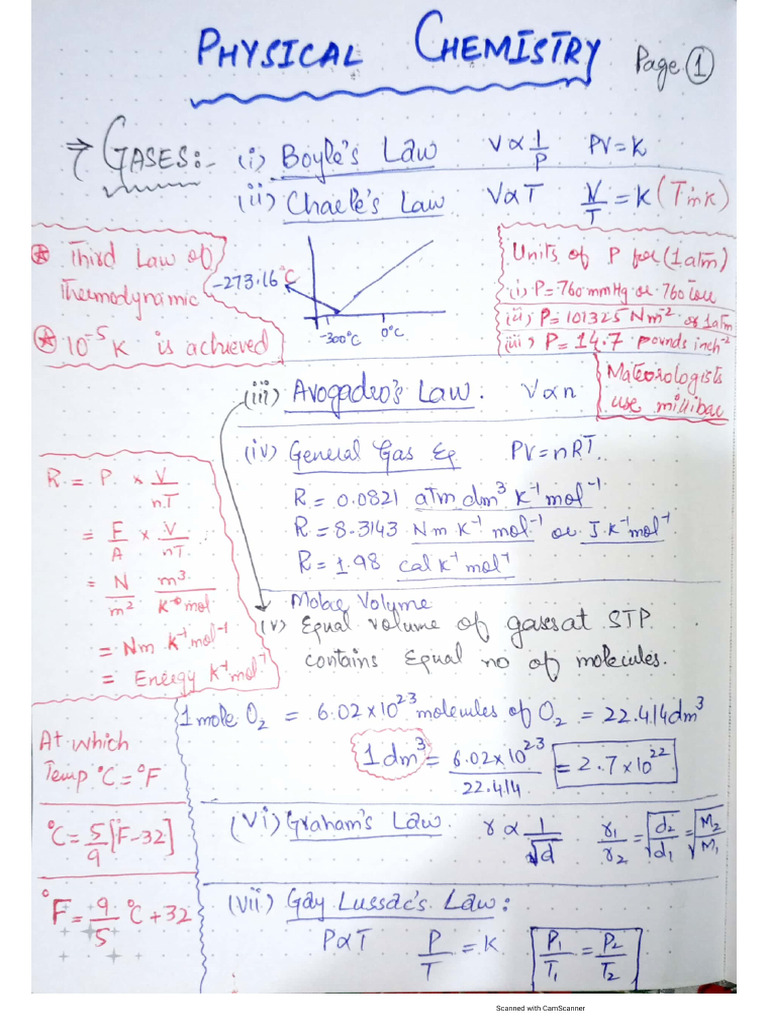 PHYSICAL CHEMISTRY Page ①
⇒ GASES:- (i) Boyle's Law V∝1/P PV=K
(ii) Charle's Law V∝T V/T = K (T in K)
⍟ Third Law of
Thermodynamic
⍟ 10⁻⁵ K is achieved
-273.16°C
-300°C 0°C
Units of P for (1 atm)
(i) P=760 mmHg or 760 torr
(ii) P=101325 Nm⁻² or 1 atm
(iii) P=14.7 pounds inch⁻²
Mateorologists
use millibar
(iii) Avogadro's Law. V∝n
(iv) General Gas Eq PV=nRT
R=0.0821 atm dm³ K⁻¹ mol⁻¹
R=8.3143 Nm K⁻¹ mol⁻¹ or J.K⁻¹ mol⁻¹
R=1.98 cal K⁻¹ mol⁻¹
R = P × V/nT
= F/A × V/nT
= N/m² m³/K mol
= Nm K⁻¹ mol⁻¹
= Energy K⁻¹ mol⁻¹
Molar Volume
(v) Equal volume of gases at STP
contains Equal no of molecules.
1 mole O₂ = 6.02×10²³ molecules of O₂ = 22.414 dm³
1 dm³ = 6.02×10²³/22.414 = 2.7×10²²
At which
Temp °C=°F
°C=5/9[F-32]
°F=9/5 °C+32
(vi) Graham's Law r∝1/√d r₁/r₂ = √d₂/d₁ = √M₂/M₁
(vii) Gay Lussac's Law:
P∝T P/T = K P₁/T₁ = P₂/T₂
Scanned with CamScanner